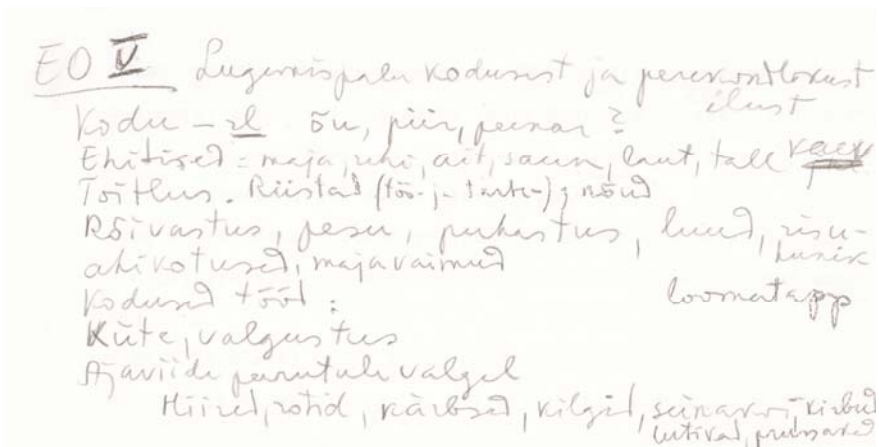 EO V Lugemispalu kodusest ja perekondlikust
ilust
Kodu – õu, piir, peenar?
Ehitised = maja, rehi, ait, saun, laut, tall kaev
Toitlus. Riistad (töö- ja tarbe-); nõud
Rõivastus, pesu, puhastus, luud, risu-
ahikotused, majavaimud hunik
Kodused tööd: loomatapp
Küte, valgustus
Ajaviide peerutule valgel
Hiired, rotid, kärbsed, kilgid, seinakoi, kirbud
lutikad, prussakad